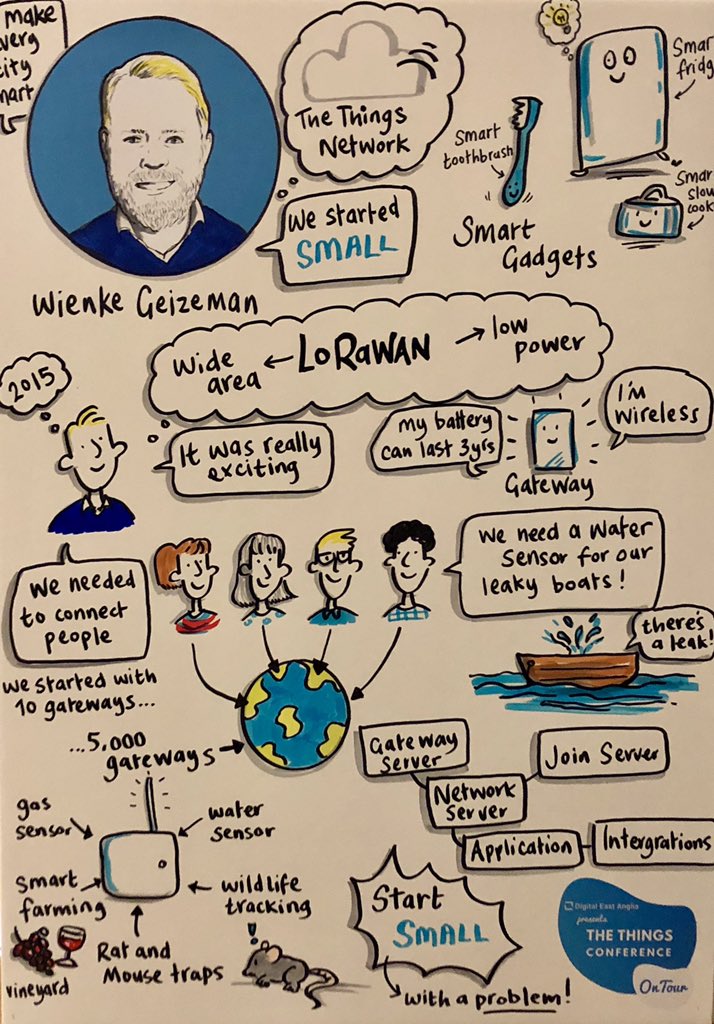 make
every
city
smart
The Things
Network
We started
SMALL
Wienke Geizeman
Smart
toothbrush
Smart
fridge
Smart
slow
cook
Smart
Gadgets
wide
area
LoRaWAN
low
power
2015
It was really
exciting
my battery
can last 3yrs
I'm
wireless
Gateway
We needed
to connect
people
We need a water
sensor for our
leaky boats!
there's
a leak!
we started with
10 gateways...
...5,000
gateways
Gateway
Server
Network
Server
Join Server
Application
Intergrations
gas
sensor
water
sensor
smart
farming
wildlife
tracking
vineyard
Rat and
Mouse traps
!
Start
SMALL
with a problem!
Digital East Anglia
presents
THE THINGS
CONFERENCE
On Tour